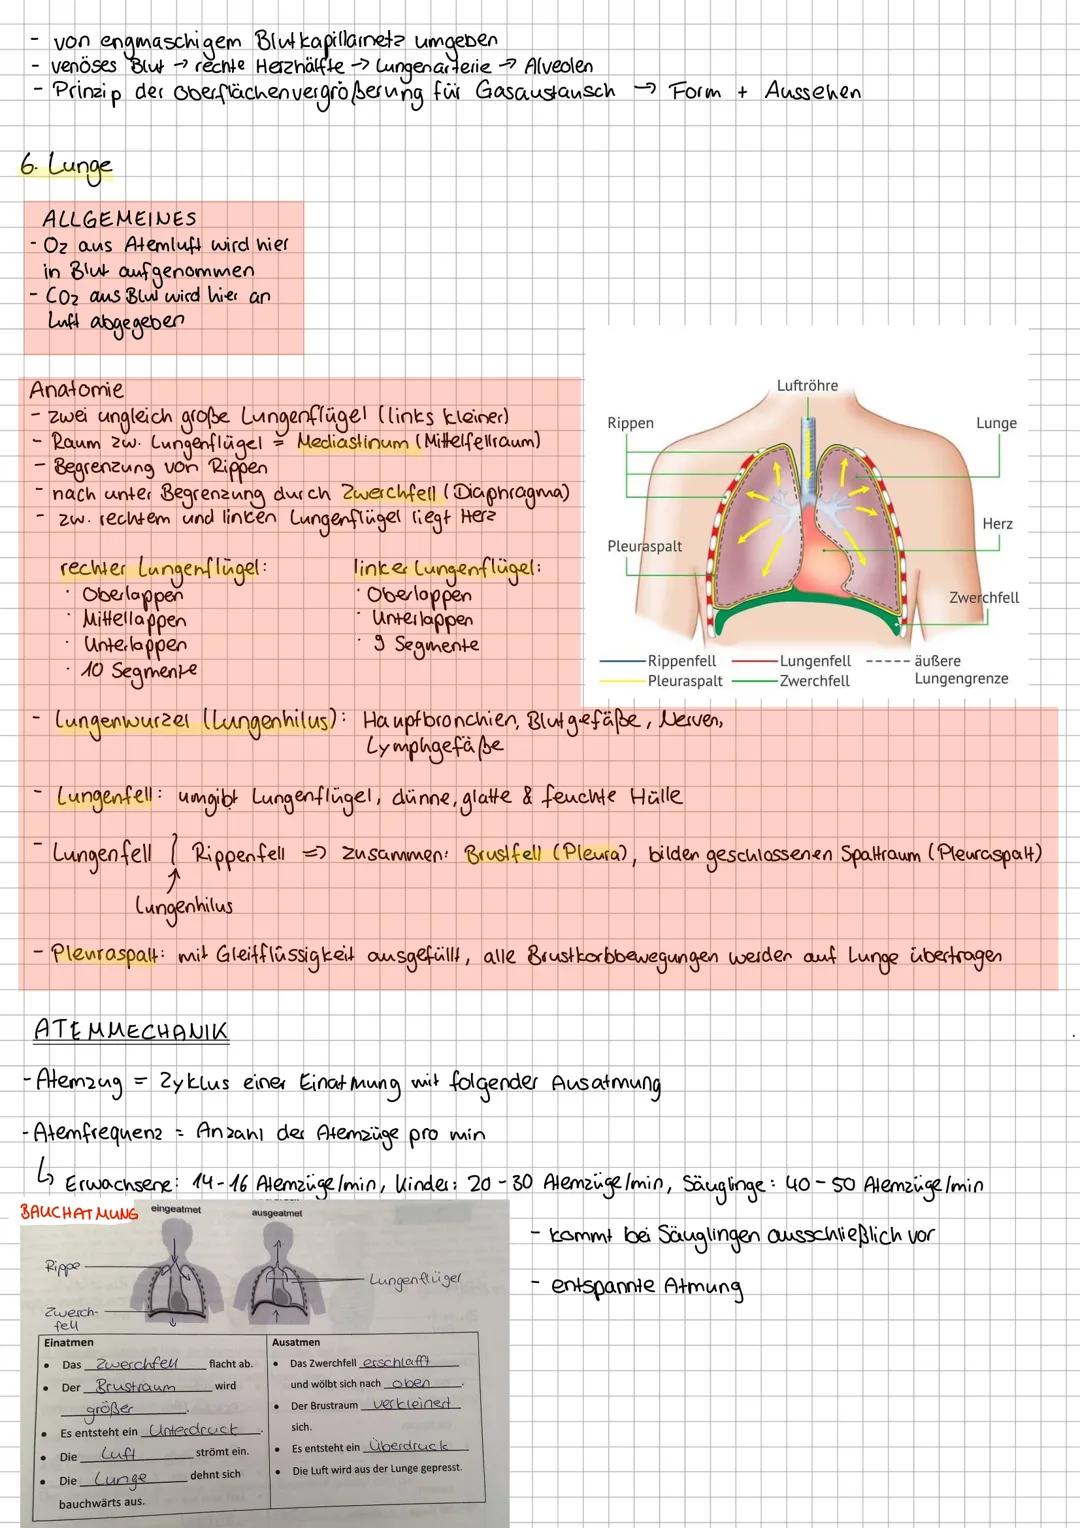 - von engmaschigem Blutkapillarnetz umgeben
- venöses Blut → rechte Herzhälfte → Lungenarterie → Alveolen
- Prinzip der Oberflächenvergrößerung für Gasaustausch → Form + Aussehen
6. Lunge
ALLGEMEINES
- O2 aus Atemluft wird hier
in Blut aufgenommen
- CO2 aus Blut wird hier an
Luft abgegeben
Anatomie
- zwei ungleich große Lungenflügel (links kleiner)
- Raum zw. Lungenflügel = Mediastinum (Mittelfellraum)
- Begrenzung von Rippen
- nach unter Begrenzung durch Zwerchfell (Diaphragma)
- zw. rechtem und linken Lungenflügel liegt Herz
rechter Lungenflügel:
· Oberlappen
· Mittellappen
· Unterlappen
· 10 Segmente
linker Lungenflügel:
· Oberlappen
· Unterlappen
· 9 Segmente
Luftröhre
Rippen
Lunge
Herz
Pleuraspalt
Zwerchfell
Rippenfell
Lungenfell
äußere
Lungengrenze
Pleuraspalt
Zwerchfell
- Lungenwurzel (Lungenhilus): Hauptbronchien, Blutgefäße, Nerven,
Lymphgefäße
- Lungenfell: umgibt Lungenflügel, dünne, glatte & feuchte Hülle
- Lungenfell } Rippenfell => zusammen: Brustfell (Pleura), bilden geschlossenen Spaltraum (Pleuraspalt)
↑
Lungenhilus
- Pleuraspalt: mit Gleitflüssigkeit ausgefüllt, alle Brustkorbbewegungen werden auf Lunge übertragen
ATEMMECHANIK
- Atemzug = Zyklus einer Einatmung mit folgender Ausatmung
- Atemfrequenz = Anzahl der Atemzüge pro min
↳ Erwachsene: 14-16 Atemzüge/min, Kinder: 20-30 Atemzüge/min, Säuglinge: 40-50 Atemzüge/min
BAUCHATMUNG
eingeatmet
ausgeatmet
Rippe
Lungenflügel
Zwerch-
fell
- kommt bei Säuglingen ausschließlich vor
- entspannte Atmung
Einatmen
• Das Zwerchfell flacht ab.
• Der Brustraum wird
größer.
• Es entsteht ein Unterdruck.
• Die Luft strömt ein.
• Die Lunge dehnt sich
bauchwärts aus.
Ausatmen
• Das Zwerchfell erschlafft
und wölbt sich nach oben.
• Der Brustraum verkleinert
sich.
• Es entsteht ein Überdruck
• Die Luft wird aus der Lunge gepresst.